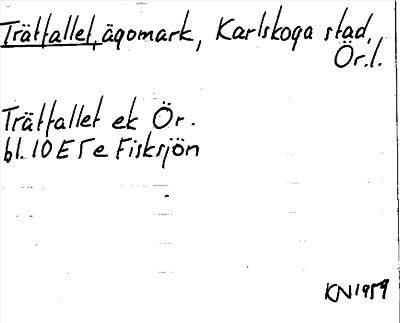 Trätfallet, ägomark, Karlskoga stad,
Ör.l.
Trätfallet ek Ör.
bl. 10E 5e Fisksjön
KN 1959